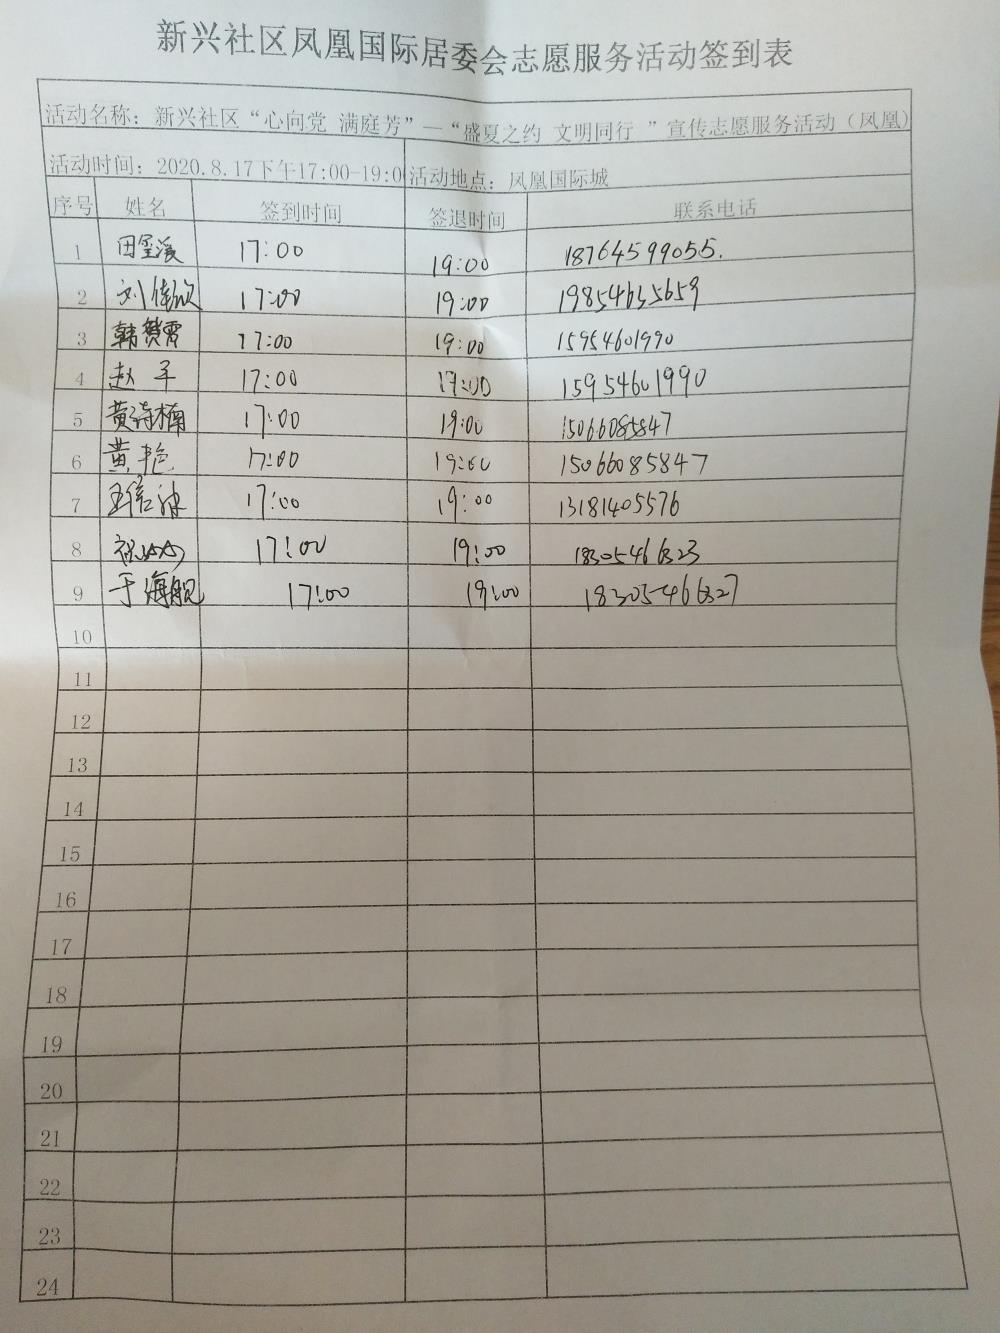 新兴社区凤凰国际居委会志愿服务活动签到表
活动名称：新兴社区“心向党 满庭芳”—“盛夏之约 文明同行 ”宣传志愿服务活动（凤凰）
活动时间：2020.8.17下午17:00-19:0 活动地点：凤凰国际城
序号 姓名 签到时间 签退时间 联系电话
1 17:00 19:00 18764599055.
2 17:00 19:00 19854635659
3 17:00 19:00 15954601990
4 赵军 17:00 17:00 15954601990
5 黄诗楠 17:00 19:00 15066085847
6 黄艳 17:00 19:00 15066085847
7 17:00 19:00 13181405576
8 17:00 19:00
9 于海舰 17:00 19:00
10
11
12
13
14
15
16
17
18
19
20
21
22
23
24